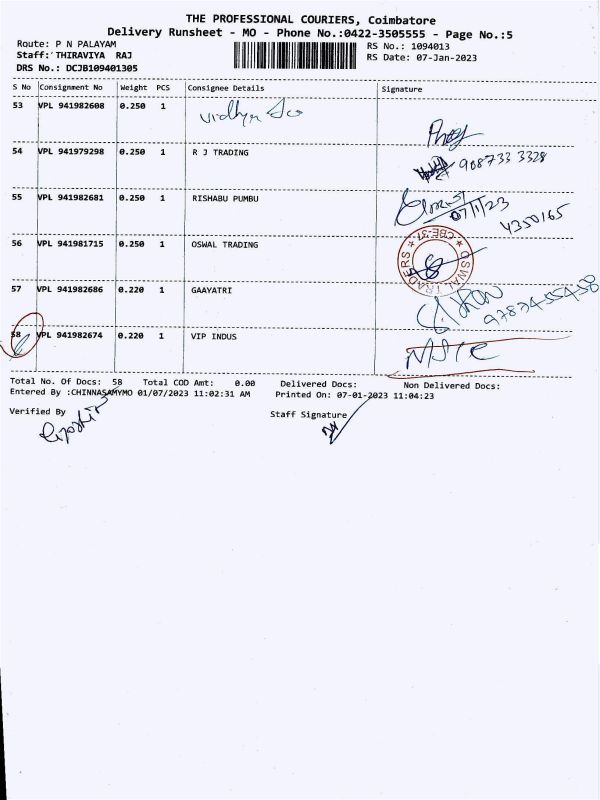 THE PROFESSIONAL COURIERS, Coimbatore
Delivery Runsheet - MO - Phone No.:0422-3505555 - Page No.:5
Route: P N PALAYAM RS No.: 1094013
Staff: THIRAVIYA RAJ RS Date: 07-Jan-2023
DRS No.: DCJB109401305
S No Consignment No Weight PCS Consignee Details Signature
53 VPL 941982608 0.250 1 Vidhya
54 VPL 941979298 0.250 1 R J TRADING 908733 3328
55 VPL 941982681 0.250 1 RISHABU PUMBU 07/1/23
4350165
56 VPL 941981715 0.250 1 OSWAL TRADING OSWAL TRADERS CBE-37
57 VPL 941982686 0.220 1 GAAYATRI
58 VPL 941982674 0.220 1 VIP INDUS
Total No. Of Docs: 58 Total COD Amt: 0.00 Delivered Docs: Non Delivered Docs:
Entered By :CHINNASAMYMO 01/07/2023 11:02:31 AM Printed On: 07-01-2023 11:04:23
Verified By Staff Signature